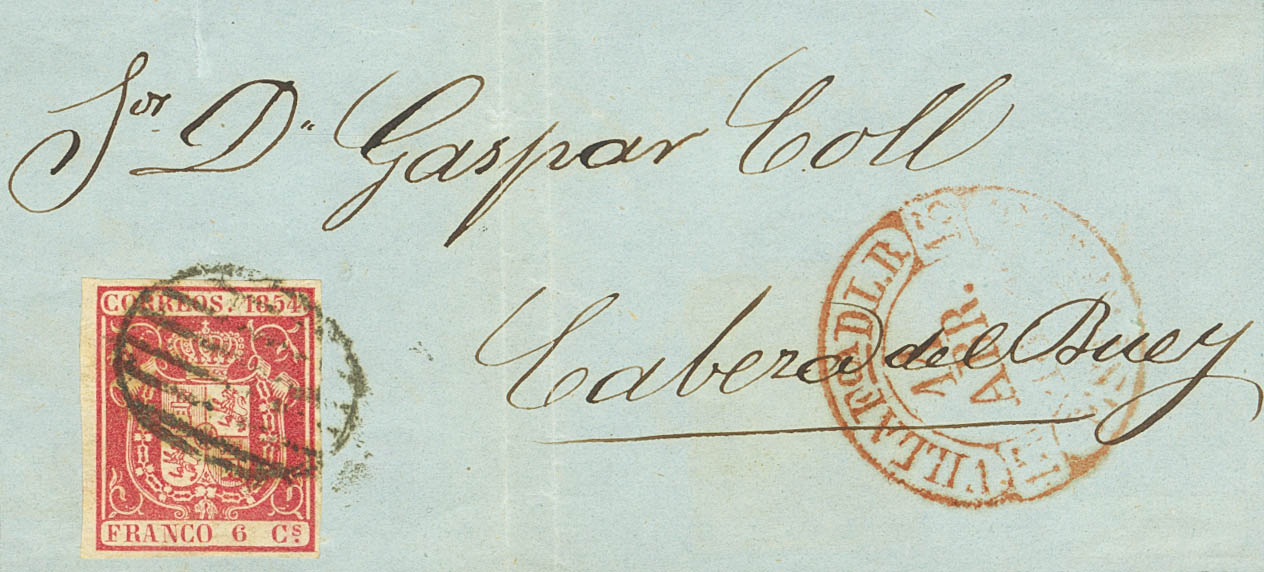 Sor. D.n Gaspar Coll
Cabeza del Buey
CORREOS. 1854
FRANCO 6 Cs.
VILLAF. D.L.B
18
ABR.